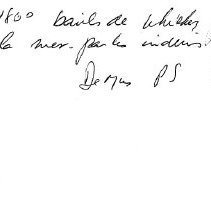 1800 barils de whisky
la mer. par les indiens
Demus PS